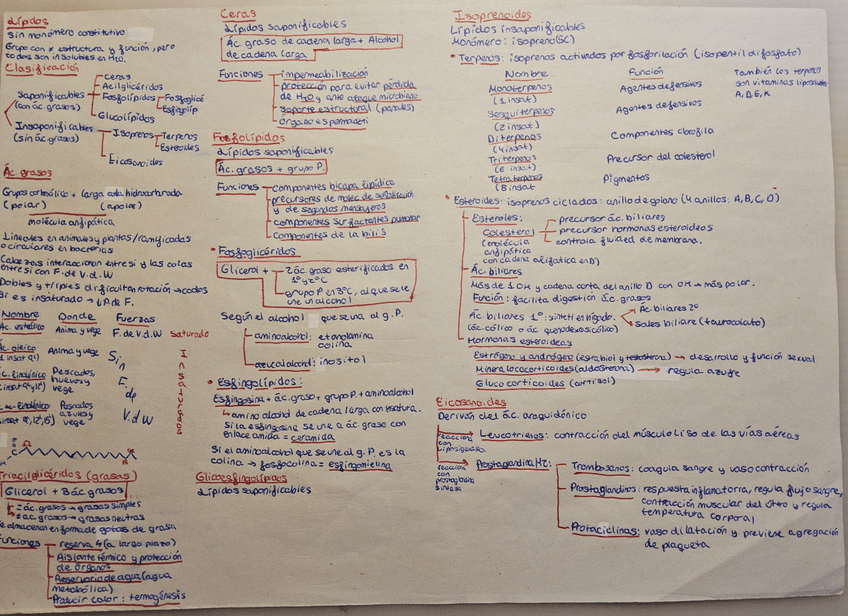 Lípidos
sin monómero constitutivo
Grupo con ≠ estructura y función, pero
todos son insolubles en H2O.
Clasificación
Saponificables
(con ác. grasos)
ceras
Acilglicéridos
Fosfolípidos
Fosfoglicé
Esfingolíp
Glucolípidos
Insaponificables
(sin ác. grasos)
Isoprenos
Terpenos
Esteroides
Eicosanoides
Ác. grasos
Grupo carboxílico + larga cola hidrocarbonada
(polar) (apolar)
molécula anfipática
Lineales en animales y plantas/ramificadas
o circulares en bacterias
Cabezas interaccionan entre sí y las colas
entre sí con F. de V.d.W
Dobles y triples dificultan rotación → codos
Si es insaturado → ↓P. de F.
Nombre Donde Fuerzas
Ác. esteárico Anima y vege F. de V.d.W saturado
Ác. oleico
1 insat 9') Anima y vege
Pescados,
huevos y
vege
Pescados
azules y
vege
Sin
F.
dp
V.d.W
Insaturados
Triacilglicéridos (grasas)
Glicerol + 3 ác. grasos
= ác. grasos → grasas simples
≠ ác. grasos → grasas neutras
se almacenan en forma de gotas de grasa
Funciones
reserva 4 (a largo plazo)
Aislante térmico y protección
de órganos
Reservorio de agua (agua
metabólica)
Producir calor: termogénesis
Ceras
Lípidos saponificables
Ác. graso de cadena larga + Alcohol
de cadena larga
Funciones
impermeabilización
protección para evitar pérdida
de H2O y ante ataque microbiano
soporte estructural (panales)
órgano espermaceti
Fosfolípidos
Lípidos saponificables
Ác. grasos + grupo P.
Funciones
componentes bicapa lipídica
precursores de molec de señalización
y de segundos mensajeros
componentes surfactantes pulmonar
componentes de la bilis
• Fosfoglicéridos
Glicerol +
2 ác. graso esterificados en
1º y 2ºC
grupo P en 3ºC, al que se le
une un alcohol
Según el alcohol que se una al g.P.
aminoalcohol: etanolamina
colina
azúcar alcohol: inositol
• Esfingolípidos:
Esfingosina + ác. graso + grupo P. + aminoalcohol
amino alcohol de cadena larga con insatura.
Si la esfingosina se une a ác. graso con
enlace amida = ceramida
Si el aminoalcohol que se une al g.P. es la
colina → fosfocolina = esfingomielina
Glicoesfingolípidos
Lípidos saponificables
Isoprenoides
Lípidos insaponificables
Monómero: isopreno (5C)
• Terpenos: isoprenos activados por fosforilación (isopentil difosfato)
Nombre Función También los terpenos
son vitaminas liposolubles
A, D, E, K
Monoterpenos
(1 insat) Agentes defensivos
Sesquiterpenos
(2 insat) Agentes defensivos
Diterpenos
(4 insat) Componentes clorofila
Triterpenos
(6 insat) Precursor del colesterol
Tetraterpenos
(8 insat Pigmentos
• Esteroides: isoprenos ciclados: anillo de gonano (4 anillos: A, B, C, D)
Esteroles:
Colesterol
(molécula
anfipática
con cadena alifática en D)
precursor ác. biliares
precursor hormonas esteroideas
controla fluided de membrana.
Ác. biliares
Más de 1 OH y cadena corta del anillo D con OH → más polar.
Función: facilita digestión ác. grasos
Ác biliares 1º: sintet en hígado.
(ác. cólico o ác quenodesoxicólico)
Ác biliares 2º
Sales biliare (taurocolato)
Hormonas esteroideas
Estrógeno y andrógeno (estrabiol y testosterona) → desarrollo y función sexual
Mineralocorticoides (aldosterona) → regula azufre
Glucocorticoides (cortisol)
Eicosanoides
Derivan del ác. araquidónico
reacción
con
lipoxigenasa
Leucotrienos: contracción del músculo liso de las vías aéreas
reacción
con
prostaglandina
sintasa
Prostaglandina H2:
Tromboxanos: coagula sangre y vasocontracción
Prostaglandinas: respuesta inflamatoria, regula flujo sangre,
contracción muscular del útero y regula
temperatura corporal
Prostaciclinas: vasodilatación y previene agregación
de plaqueta